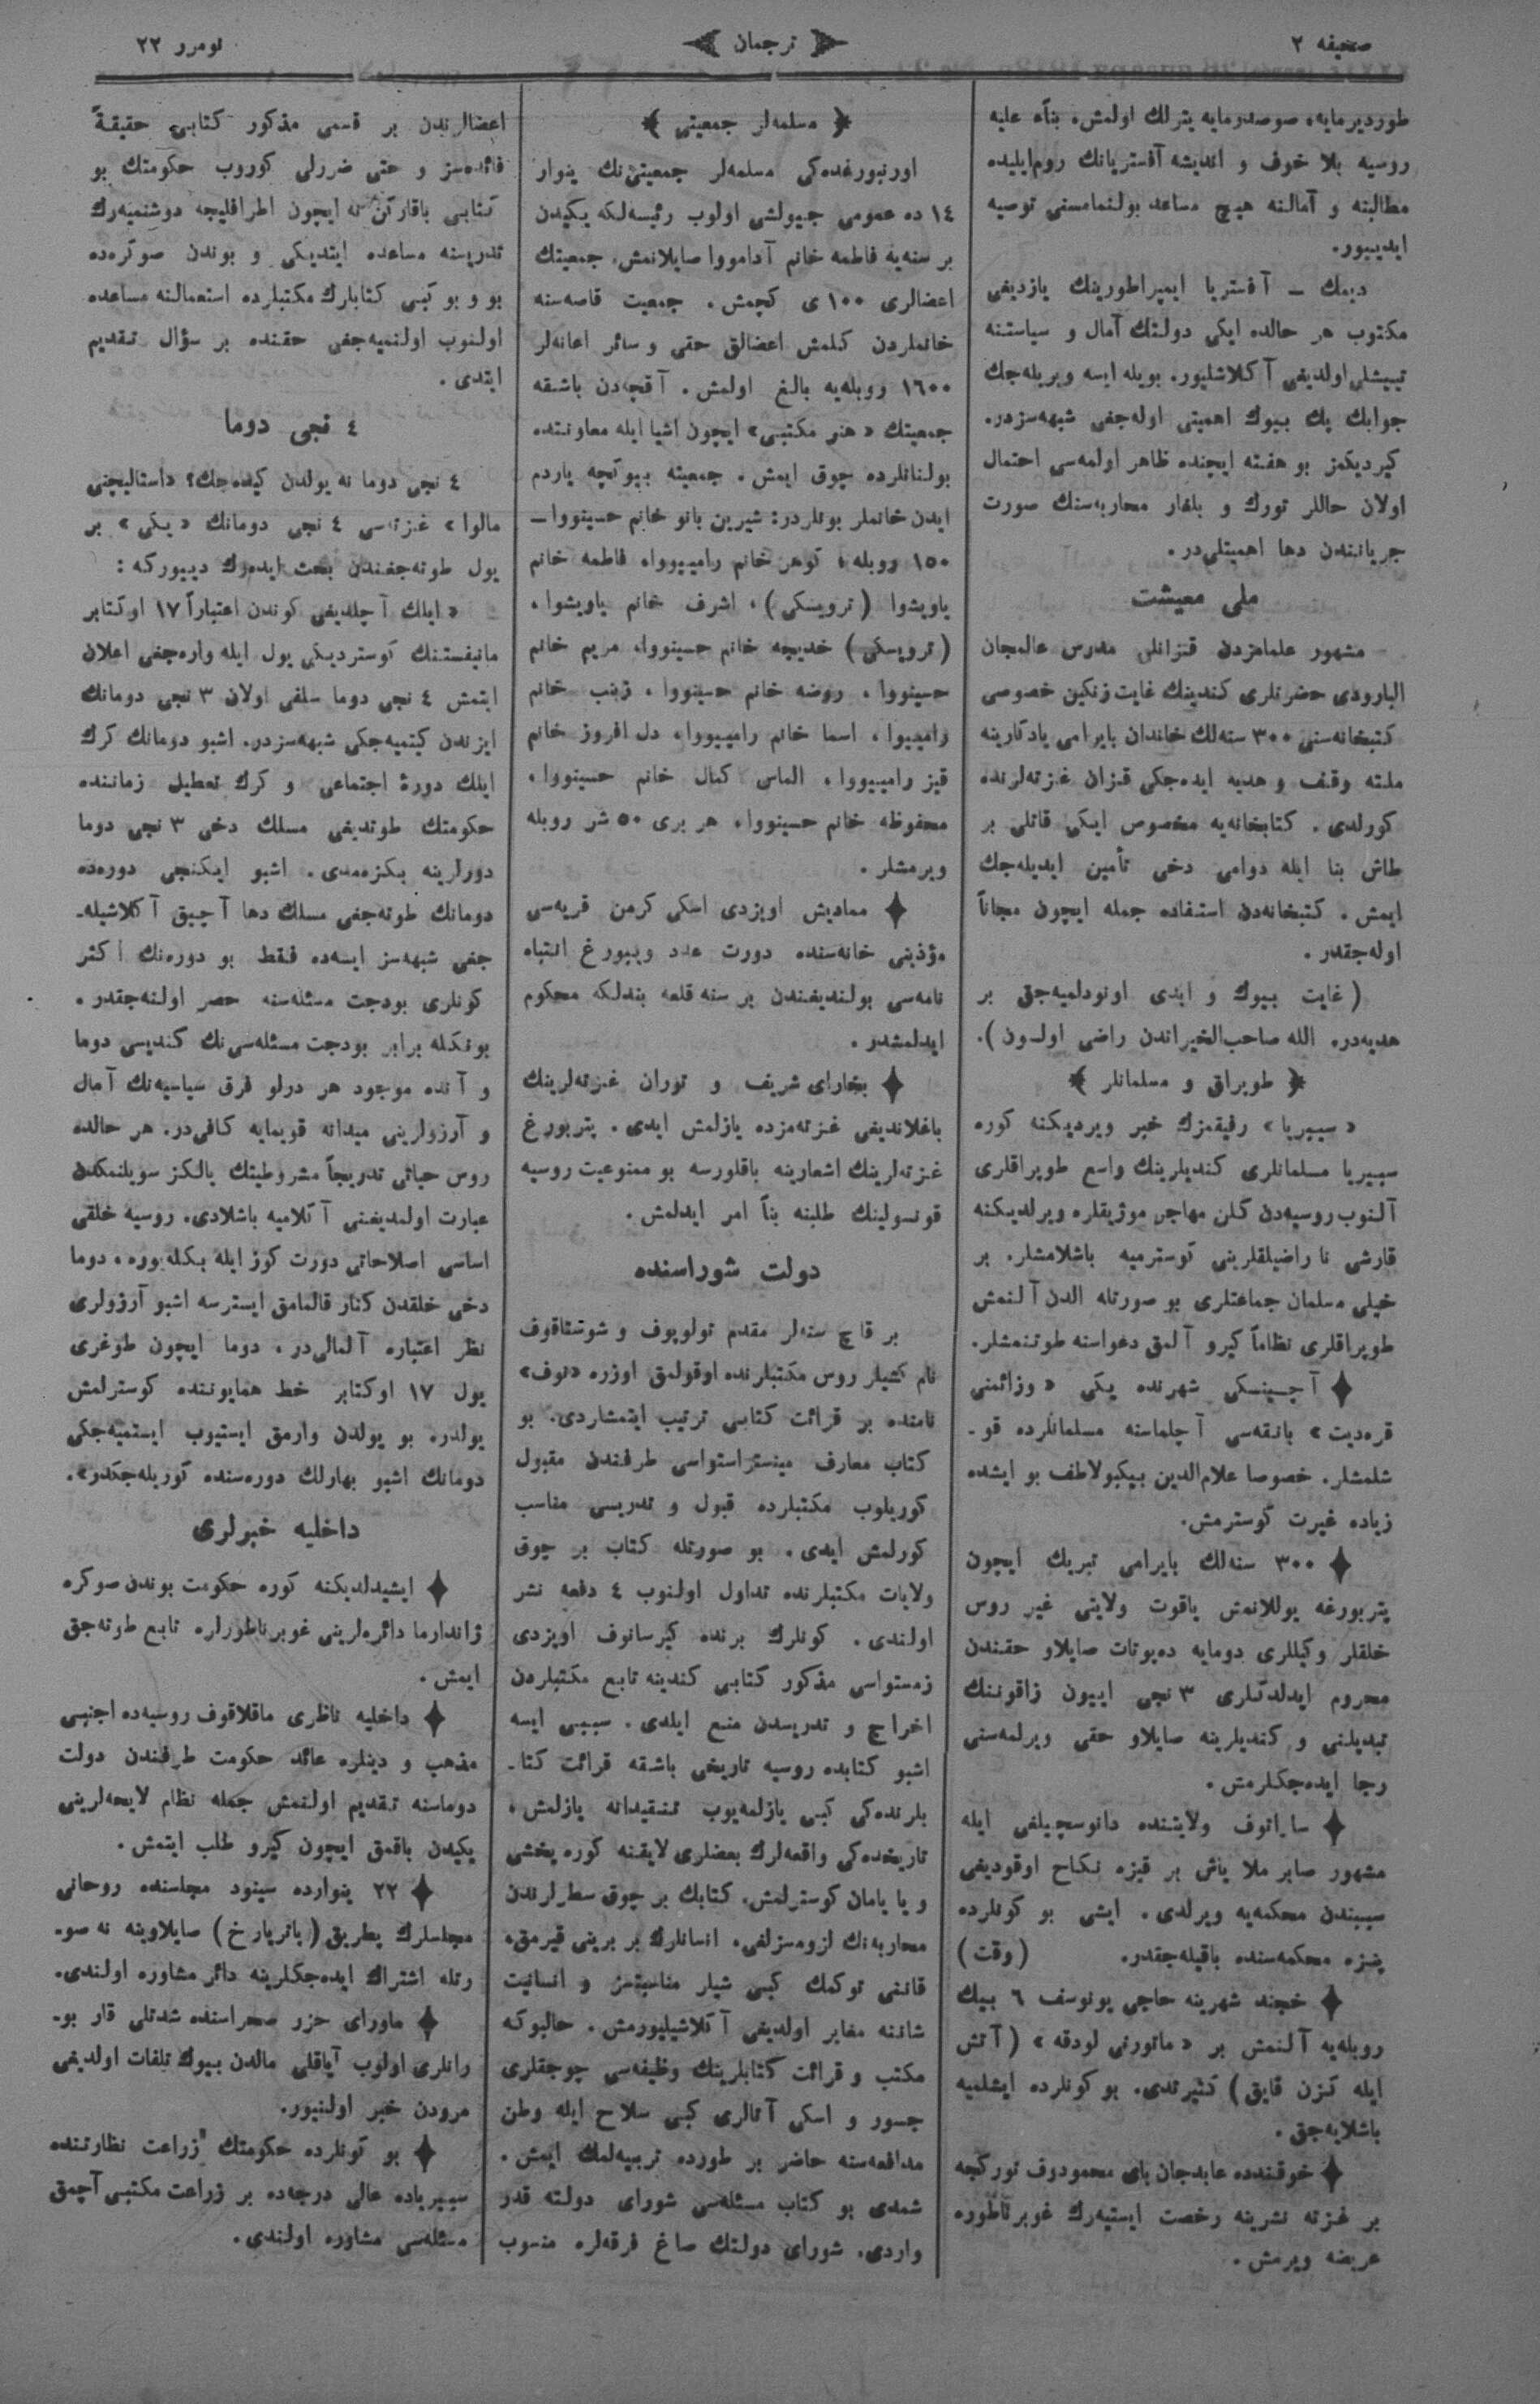 صحيفه ٢
ترجمان
نومرو ٢٢
طوردیرمایه، صوصدرمایه یترلك اولمش، بناءً علیه
روسیه بلا خوف و اندیشه آفستریانك روم‌ایلیده
مطالبنه و آمالنه هیچ مساعد بولنمامسنی توصیه
ایدییور.
دیمك ــ آفستریا ایمپراطورینك یازدیغی
مكتوب هر حالده ایكی دولتك آمال و سیاستنه
تییشلی اولدیغی آكلاشلیور. بویله ایسه ویریله‌جك
جوابك پك بیوك اهمیتی اوله‌جغی شبهه‌سزدر.
كیردیكمز بو هفته ایچنده ظاهر اولمه‌سی احتمال
اولان حاللر تورك و بلغار محاربه‌سنك صورت
جریانندن دها اهمیتلی‌در.
ملی معیشت
مشهور علمامزدن قزانلی مدرس عالمجان
البارودی حضرتلری كندینك غایت زنكین خصوصی
كتبخانه‌سنی ٣٠٠ سنه‌لك خاندان بایرامی یادكارینه
ملته وقف و هدیه ایده‌جكی قزان غزته‌لرنده
كورلدی. كتابخانه‌یه مخصوص ایكی قاتلی بر
طاش بنا ایله دوامی دخی تأمین ایدیله‌جك
ایمش. كتبخانه‌دن استفاده جمله ایچون مجاناً
اوله‌جقدر.
(غایت بیوك و ابدی اونودلمیه‌جق بر
هدیه‌در. الله صاحب‌الخیراندن راضی اولسون).
﴿ طوپراق و مسلمانلر ﴾
«سیبریا» رفیقمزك خبر ویردیكنه كوره
سیبریا مسلمانلری كندیلرینك واسع طوپراقلری
آلنوب روسیه‌دن كلن مهاجر موژیقلره ویرلدیكنه
قارشی نا راضیلقلرینی كوسترمیه باشلامشلر. بر
خیلی مسلمان جماعتلری بو صورتله الدن آلنمش
طوپراقلری نظاماً كیرو آلمق دعواسنه طوتنمشلر.
آچینسكی شهرنده یكی «وزائمنی
قره‌دیت» بانقه‌سی آچلماسنه مسلمانلرده قو-
شلمشلر. خصوصا علام‌الدین بیكبولاطف بو ایشده
زیاده غیرت كوسترمش.
٣٠٠ سنه‌لك بایرامی تبریك ایچون
پتربورغه یوللانمش یاقوت ولایتی غیر روس
خلقلر وكیللری دومایه ده‌پوتات صایلاو حقندن
محروم ایدلدكلری ٣ نجی اییون زاقوننك
تبدیلنی و كندیلرینه صایلاو حقی ویرلمه‌سنی
رجا ایده‌جكلرمش.
ساراتوف ولایتنده دانوسچیلغی ایله
مشهور صابر ملا یاش بر قیزه نكاح اوقودیغی
سببندن محكمه‌یه ویرلدی. ایشی بو كونلرده
پنزه محكمه‌سنده باقیله‌جقدر. (وقت)
خجند شهرینه حاجی یونوسف ٦ بیك
روبله‌یه آلنمش بر «ماتورنی لودقه» (آتش
ایله كزن قایق) كتیرتدی. بو كونلرده ایشلمیه
باشلایه‌جق.
خوقندده عابدجان بای محمودوف توركچه
بر غزته نشرینه رخصت ایستیه‌رك غوبرناطوره
عریضه ویرمش.
﴿ مسلمه‌لر جمعیتی ﴾
اورنبورغده‌كی مسلمه‌لر جمعیتی‌نك ینوار
١٤ ده عمومی جیولشی اولوب رئیسه‌لكه یكیدن
بر سنه‌یه فاطمه خانم آدامووا صایلانمش. جمعیتك
اعضالری ١٠٠ ی كچمش. جمعیت قاصه‌سنه
خانملردن كلمش اعضالق حقی و سائر اعانه‌لر
١٦٠٠ روبله‌یه بالغ اولمش. آقچه‌دن باشقه
جمعیتك «هنر مكتبی» ایچون اشیا ایله معاونتده
بولنانلرده چوق ایمش. جمعیته بیوكچه یاردم
ایدن خانملر بونلردر: شیرین بانو خانم حسینووا ــ
١٥٠ روبله، كوهر خانم رامییووا، فاطمه خانم
یاویشوا (ترویسكی)، اشرف خانم یاویشوا،
(ترویسكی) خدیجه خانم حسینووا، مریم خانم
حسینووا، روضه خانم حسینووا، زینب خانم
رامییوا، اسما خانم رامییووا، دل افروز خانم
قیز رامییووا، الماس كمال خانم حسینووا،
محفوظه خانم حسینووا، هر بری ٥٠ شر روبله
ویرمشلر.
ممادیش اویزدی اسكی كرمن قریه‌سی
مؤذینی خانه‌سنده دورت عدد ویبورغ انتباه
نامه‌سی بولندیغندن بر سنه قلعه بندلكه محكوم
ایدلمشدر.
بخارای شریف و توران غزته‌لرینك
باغلاندیغی غزته‌مزده یازلمش ایدی. پتربورغ
غزته‌لرینك اشعارینه باقلورسه بو ممنوعیت روسیه
قونسولینك طلبنه بناً امر ایدلمش.
دولت شوراسنده
بر قاچ سنه‌لر مقدم تولوپوف و شوستاقوف
نام كشیلر روس مكتبلرنده اوقولمق اوزره «نوف»
نامنده بر قرائت كتابی ترتیب ایتمشاردی. بو
كتاب معارف مینسترستواسی طرفندن مقبول
كوریلوب مكتبلرده قبول و تدریسی مناسب
كورلمش ایدی. بو صورتله كتاب بر چوق
ولایات مكتبلرنده تداول اولنوب ٤ دفعه نشر
اولندی. كونلرك برنده كیرسانوف اویزدی
زمستواسی مذكور كتابی كندینه تابع مكتبلردن
اخراج و تدریسدن منع ایلدی. سببی ایسه
اشبو كتابده روسیه تاریخی باشقه قرائت كتا-
بلرنده‌كی كبی یازلمه‌یوب تنقیدانه یازلمش،
تاریخده‌كی واقعه‌لرك بعضلری لایقنه كوره یخشی
و یا یامان كوسترلمش. كتابك بر چوق سطرلرندن
محاربه‌نك لزومسزلغی، انسانلرك بر برینی قیرمق،
قاننی توكمك كبی شیلر مناسبتسز و انسانیت
شاننه مغایر اولدیغی آكلاشیلیورمش. حالبوكه
مكتب و قرائت كتابلرینك وظیفه‌سی چوجقلری
جسور و اسكی آتالری كبی سلاح ایله وطن
مدافعه‌سنه حاضر بر طورده تربیه‌لمك ایمش.
شمدی بو كتاب مسئله‌سی شورای دولته قدر
واردی. شورای دولتك صاغ فرقه‌لره منسوب
اعضالرندن بر قسمی مذكور كتابی حقیقةً
فائده‌سز و حتی ضررلی كوروب حكومتك بو
كتابی باقاركن نه ایچون اطرافلیجه دوشنمیه‌رك
تدریسنه مساعده ایتدیكی و بوندن صوكره‌ده
بو و بو كبی كتابلرك مكتبلرده استعمالنه مساعده
اولنوب اولنمیه‌جغی حقنده بر سؤال تقدیم
ایتدی.
٤ نجی دوما
٤ نجی دوما نه یولدن كیده‌جك؟ «استالیچنی
مالوا» غزته‌سی ٤ نجی دومانك «یكی» بر
یول طوته‌جغندن بحث ایده‌رك دییوركه:
«ایلك آچلدیغی كوندن اعتباراً ١٧ اوكتابر
مانیفستنك كوستردیكی یول ایله واره‌جغی اعلان
ایتمش ٤ نجی دوما سلفی اولان ٣ نجی دومانك
ایزندن كیتمیه‌جكی شبهه‌سزدر. اشبو دومانك كرك
ایلك دورۀ اجتماعی و كرك تعطیل زماننده
حكومتك طوتدیغی مسلك دخی ٣ نجی دوما
دورلرینه بكزه‌مدی. اشبو ایكنجی دوره‌ده
دومانك طوته‌جغی مسلك دها آچیق آكلاشیله-
جغی شبهه‌سز ایسه‌ده فقط بو دوره‌نك اكثر
كونلری بودجت مسئله‌سنه حصر اولنه‌جقدر.
بونكله برابر بودجت مسئله‌سی‌نك كندیسی دوما
و آنده موجود هر درلو فرق سیاسیه‌نك آمال
و آرزولرینی میدانه قویمایه كافی‌در. هر حالده
روس حیاتی تدریجاً مشروطیتك یالكز سویلنمكدن
عبارت اولمدیغنی آكلامیه باشلادی. روسیه خلقی
اساسی اصلاحاتی دورت كوز ایله بكله‌یور، دوما
دخی خلقدن كنار قالمامق ایسترسه اشبو آرزولری
نظر اعتباره آلمالی‌در، دوما ایچون طوغری
یول ١٧ اوكتابر خط همایوننده كوسترلمش
یولدر. بو یولدن وارمق ایستیوب ایستمیه‌جكی
دومانك اشبو بهارلك دوره‌سنده كوریله‌جكدر».
داخلیه خبرلری
ایشیدلدیكنه كوره حكومت بوندن صوكره
ژاندارما دائره‌لرینی غوبرناطورلره تابع طوته‌جق
ایمش.
داخلیه ناظری ماقلاقوف روسیه‌ده اجنبی
مذهب و دینلره عائد حكومت طرفندن دولت
دوماسنه تقدیم اولنمش جمله نظام لایحه‌لرینی
یكیدن باقمق ایچون كیرو طلب ایتمش.
٢٢ ینوارده سینود مجلسنده روحانی
مجلسلرك بطریق (پاتریارخ) صایلاوینه نه صو-
رتله اشتراك ایده‌جكلرینه دائر مشاوره اولندی.
ماورای حزر صحراسنده شدتلی قار بو-
رانلری اولوب آیاقلی مالدن بیوك تلفات اولدیغی
مرودن خبر اولنیور.
بو كونلرده حكومتك زراعت نظارتنده
سیبریاده عالی درجه‌ده بر زراعت مكتبی آچمق
مسئله‌سی مشاوره اولندی.